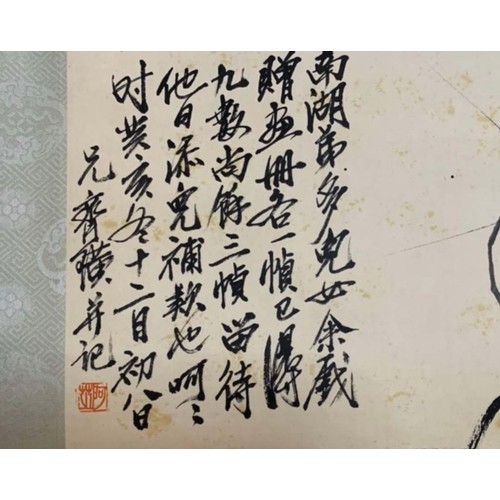 南湖弟多兒女余戲
贈畫册各一幀已得
九數尚餘三幀留待
他日添兒補款也呵〻
时癸亥冬十二月初八日
兄齊璜并記